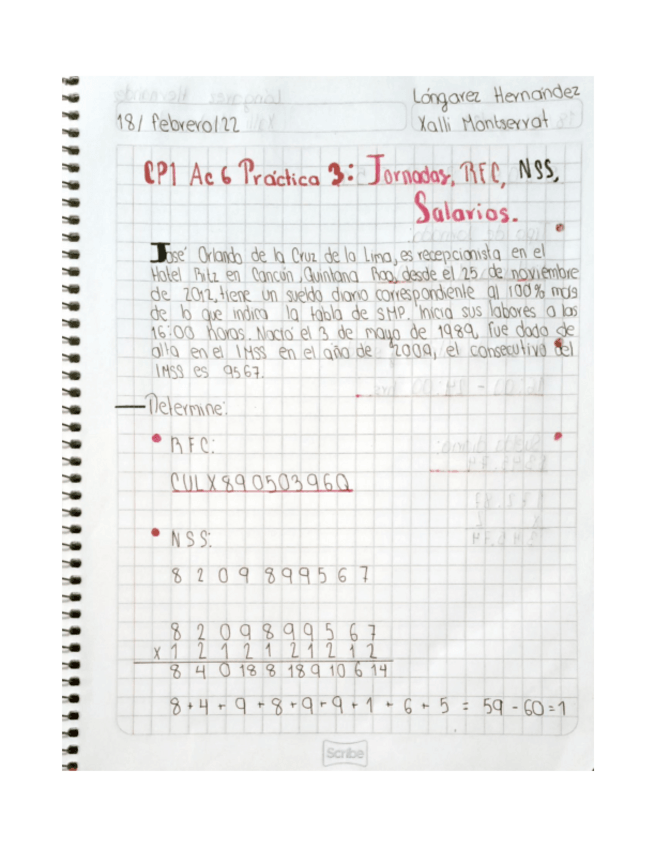 Lóngarez Hernández
18/ febrero/22
Xalli Montserrat
CP1 Ac 6 Práctica 3: Jornadas, RFC, NSS,
Salarios.
José Orlando de la Cruz de la Lima, es recepcionista en el
Hotel Ritz en Cancún, Quintana Roo, desde el 25 de noviembre
de 2012, tiene un sueldo diario correspondiente al 100% más
de lo que indica la tabla de SMP. Inicia sus labores a las
16:00 horas. Nació el 3 de mayo de 1989, fue dado de
alta en el IMSS en el año de 2009, el consecutivo del
IMSS es 9567.
— Determine:
• RFC:
CULX890503960
• NSS:
8 2 0 9 8 9 9 9 5 6 7
8 2 0 9 8 9 9 5 6 7
x 1 2 1 2 1 2 1 2 1 2
8 4 0 18 8 18 9 10 6 14
8 + 4 + 9 + 8 + 9 + 9 + 1 + 6 + 5 = 59 - 60 = 1
Scribe